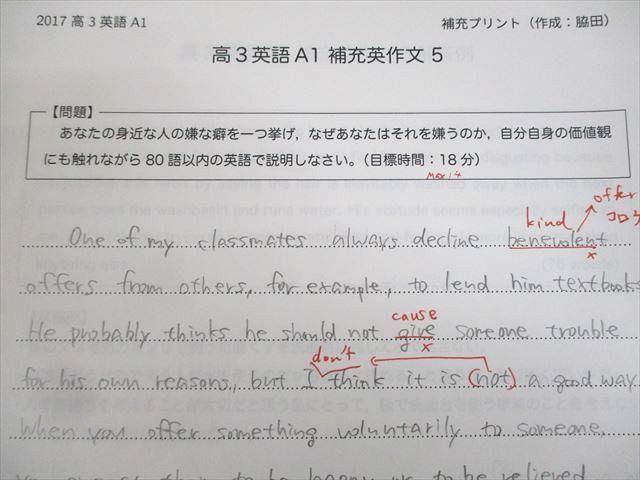 2017 高3英語A1
補充プリント（作成：脇田）
高3英語A1 補充英作文5
【問題】
あなたの身近な人の嫌な癖を一つ挙げ，なぜあなたはそれを嫌うのか，自分自身の価値観
にも触れながら80語以内の英語で説明しなさい。（目標時間：18分）
offer
kind
コロケ
One of my classmates always decline benevolent
×
offers from others, for example, to lend him textbooks
cause
He probably thinks he should not give someone trouble
×
don't
for his own reasons, but I think it is (not) a good way
When you offer something voluntarily to someone,
to be happy to be relieved